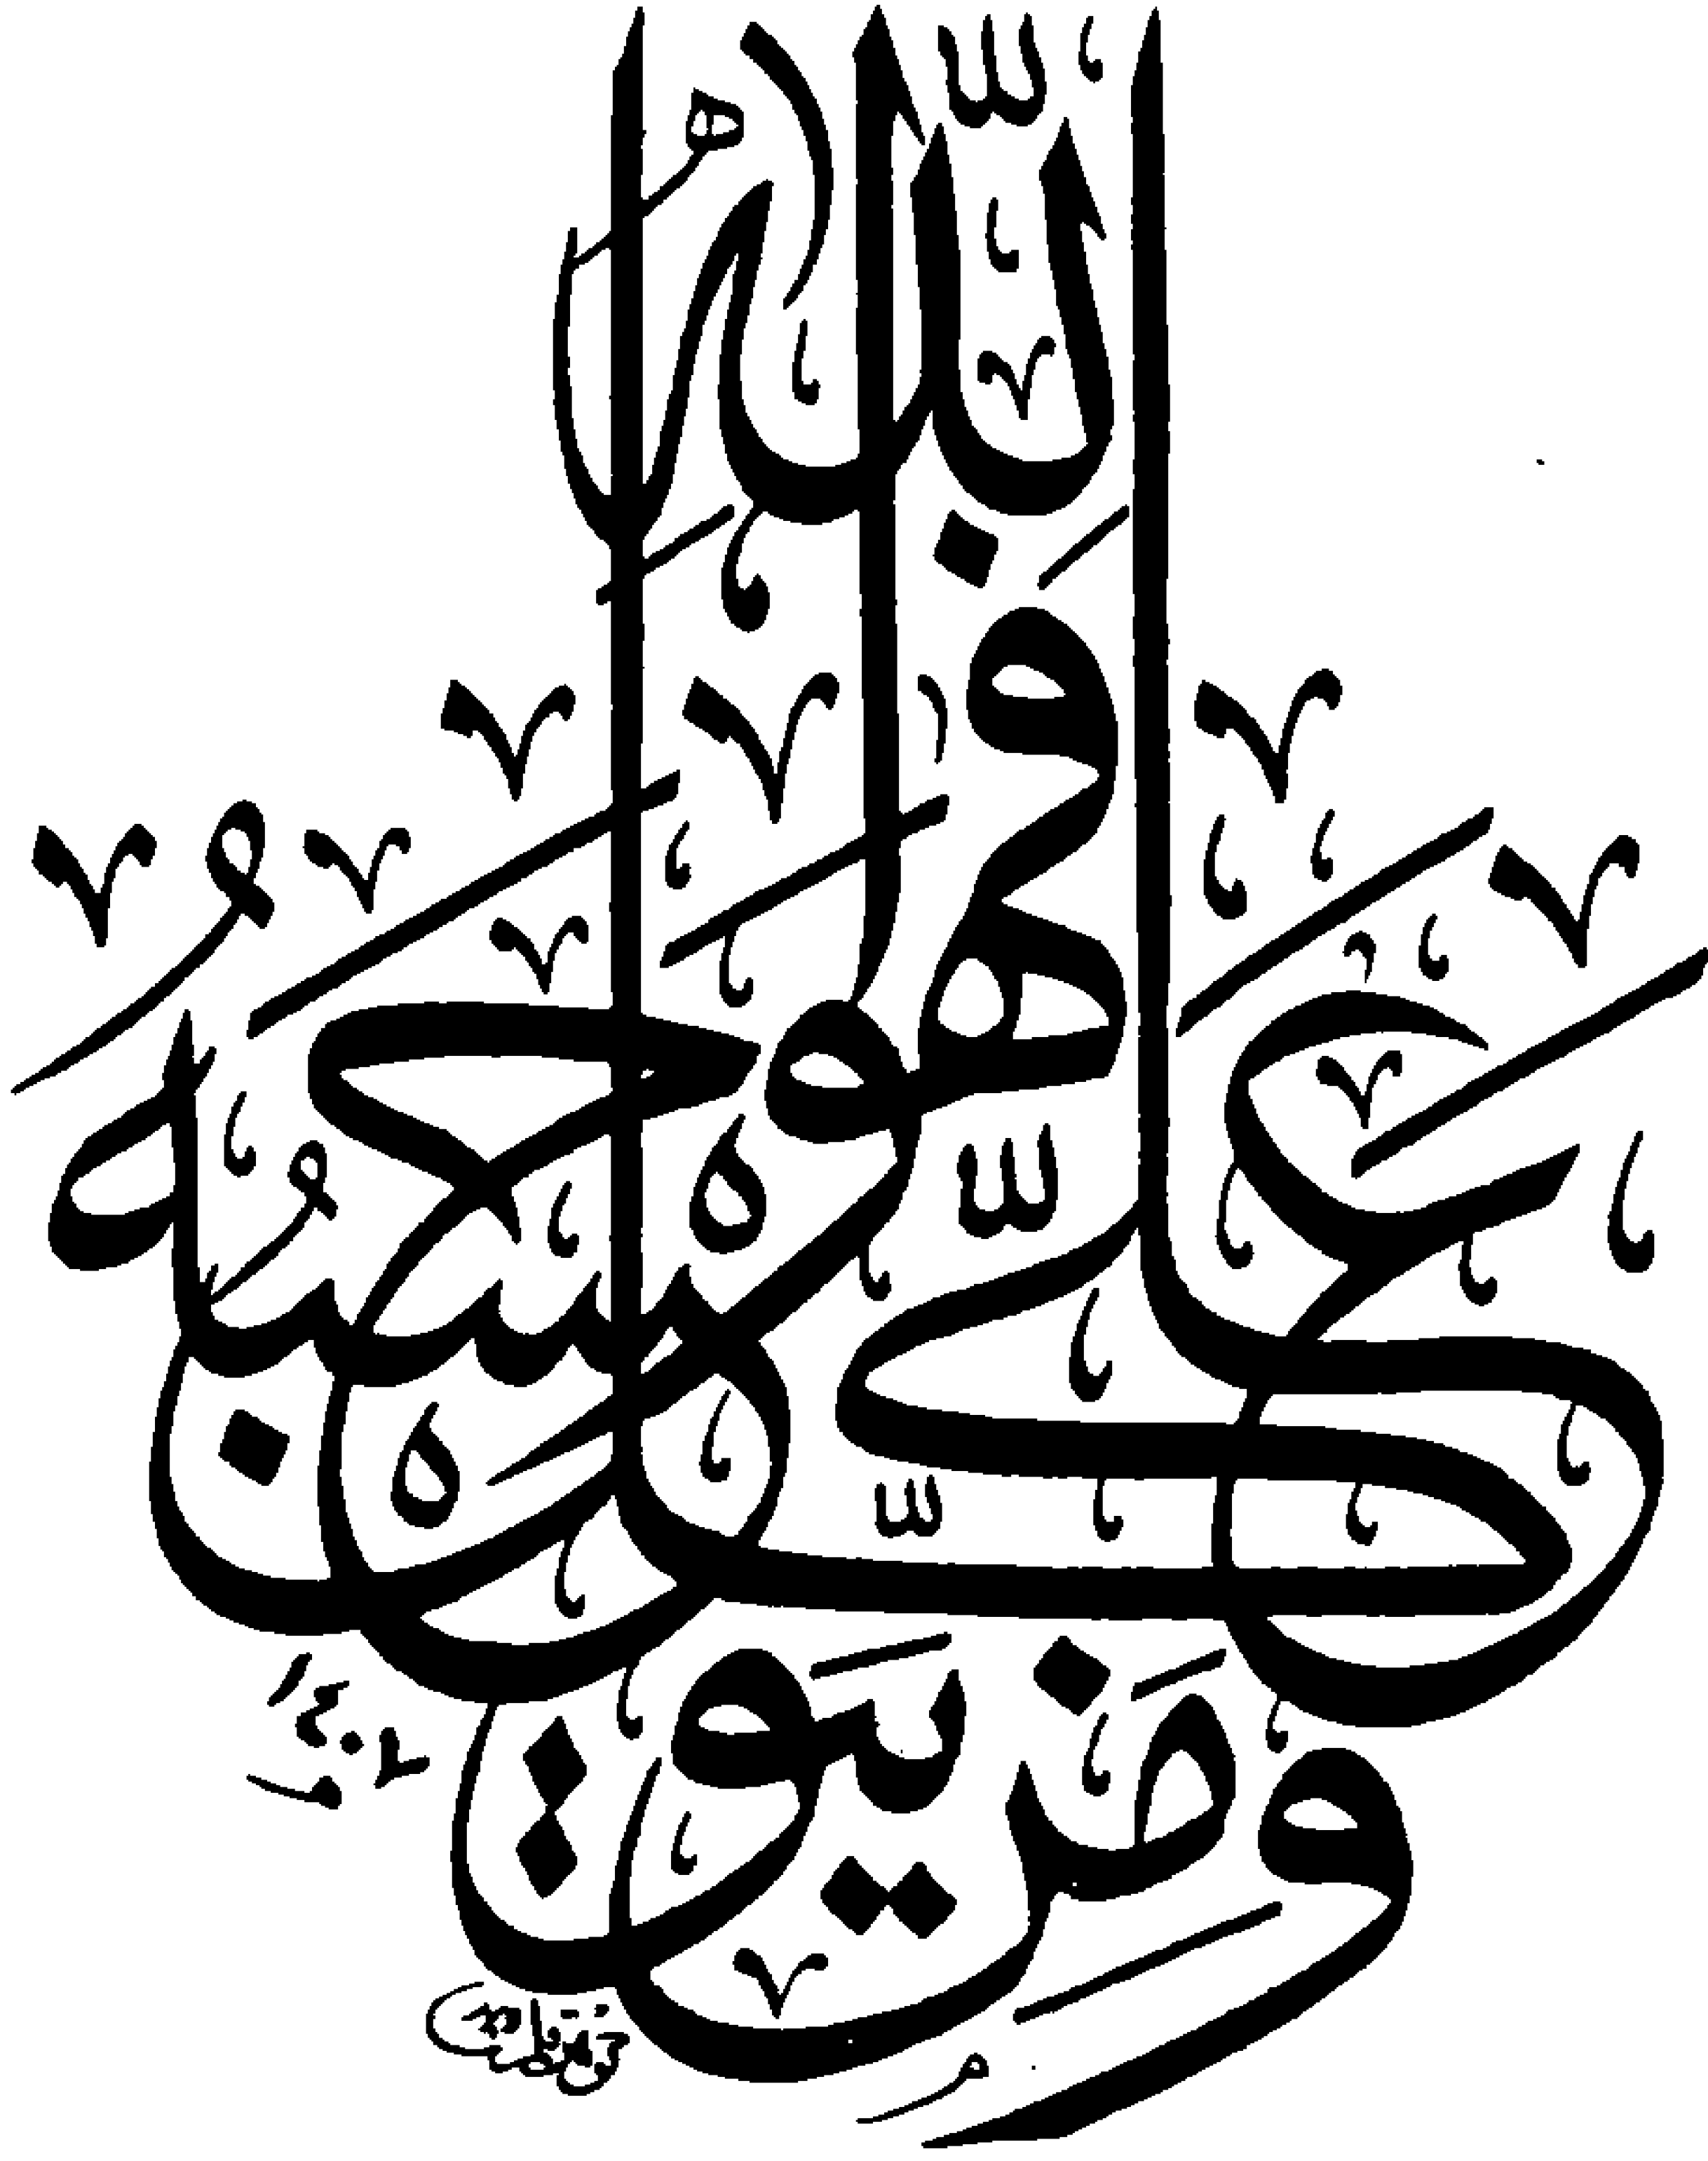 ومن يتوكل على الله فهو حسبه
١٤٠٢